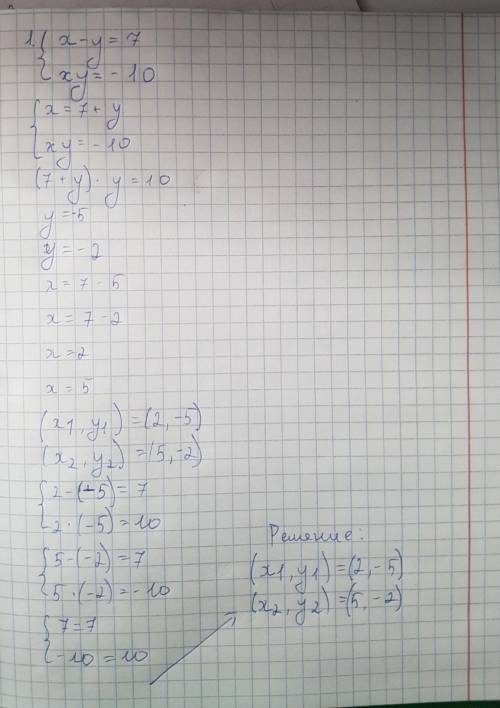 1. { x - y = 7
xy = - 10
{ x = 7 + y
xy = - 10
(7 + y) · y = 10
y = -5
y = - 2
x = 7 - 5
x = 7 - 2
x = 2
x = 5
(x1, y1) = (2, -5)
(x2, y2) = (5, -2)
{ 2 - (-5) = 7
2 · (-5) = 10
{ 5 - (-2) = 7
5 · (-2) = - 10
{ 7 = 7
-10 = 10
Решение:
(x1, y1) = (2, -5)
(x2, y2) = (5, -2)